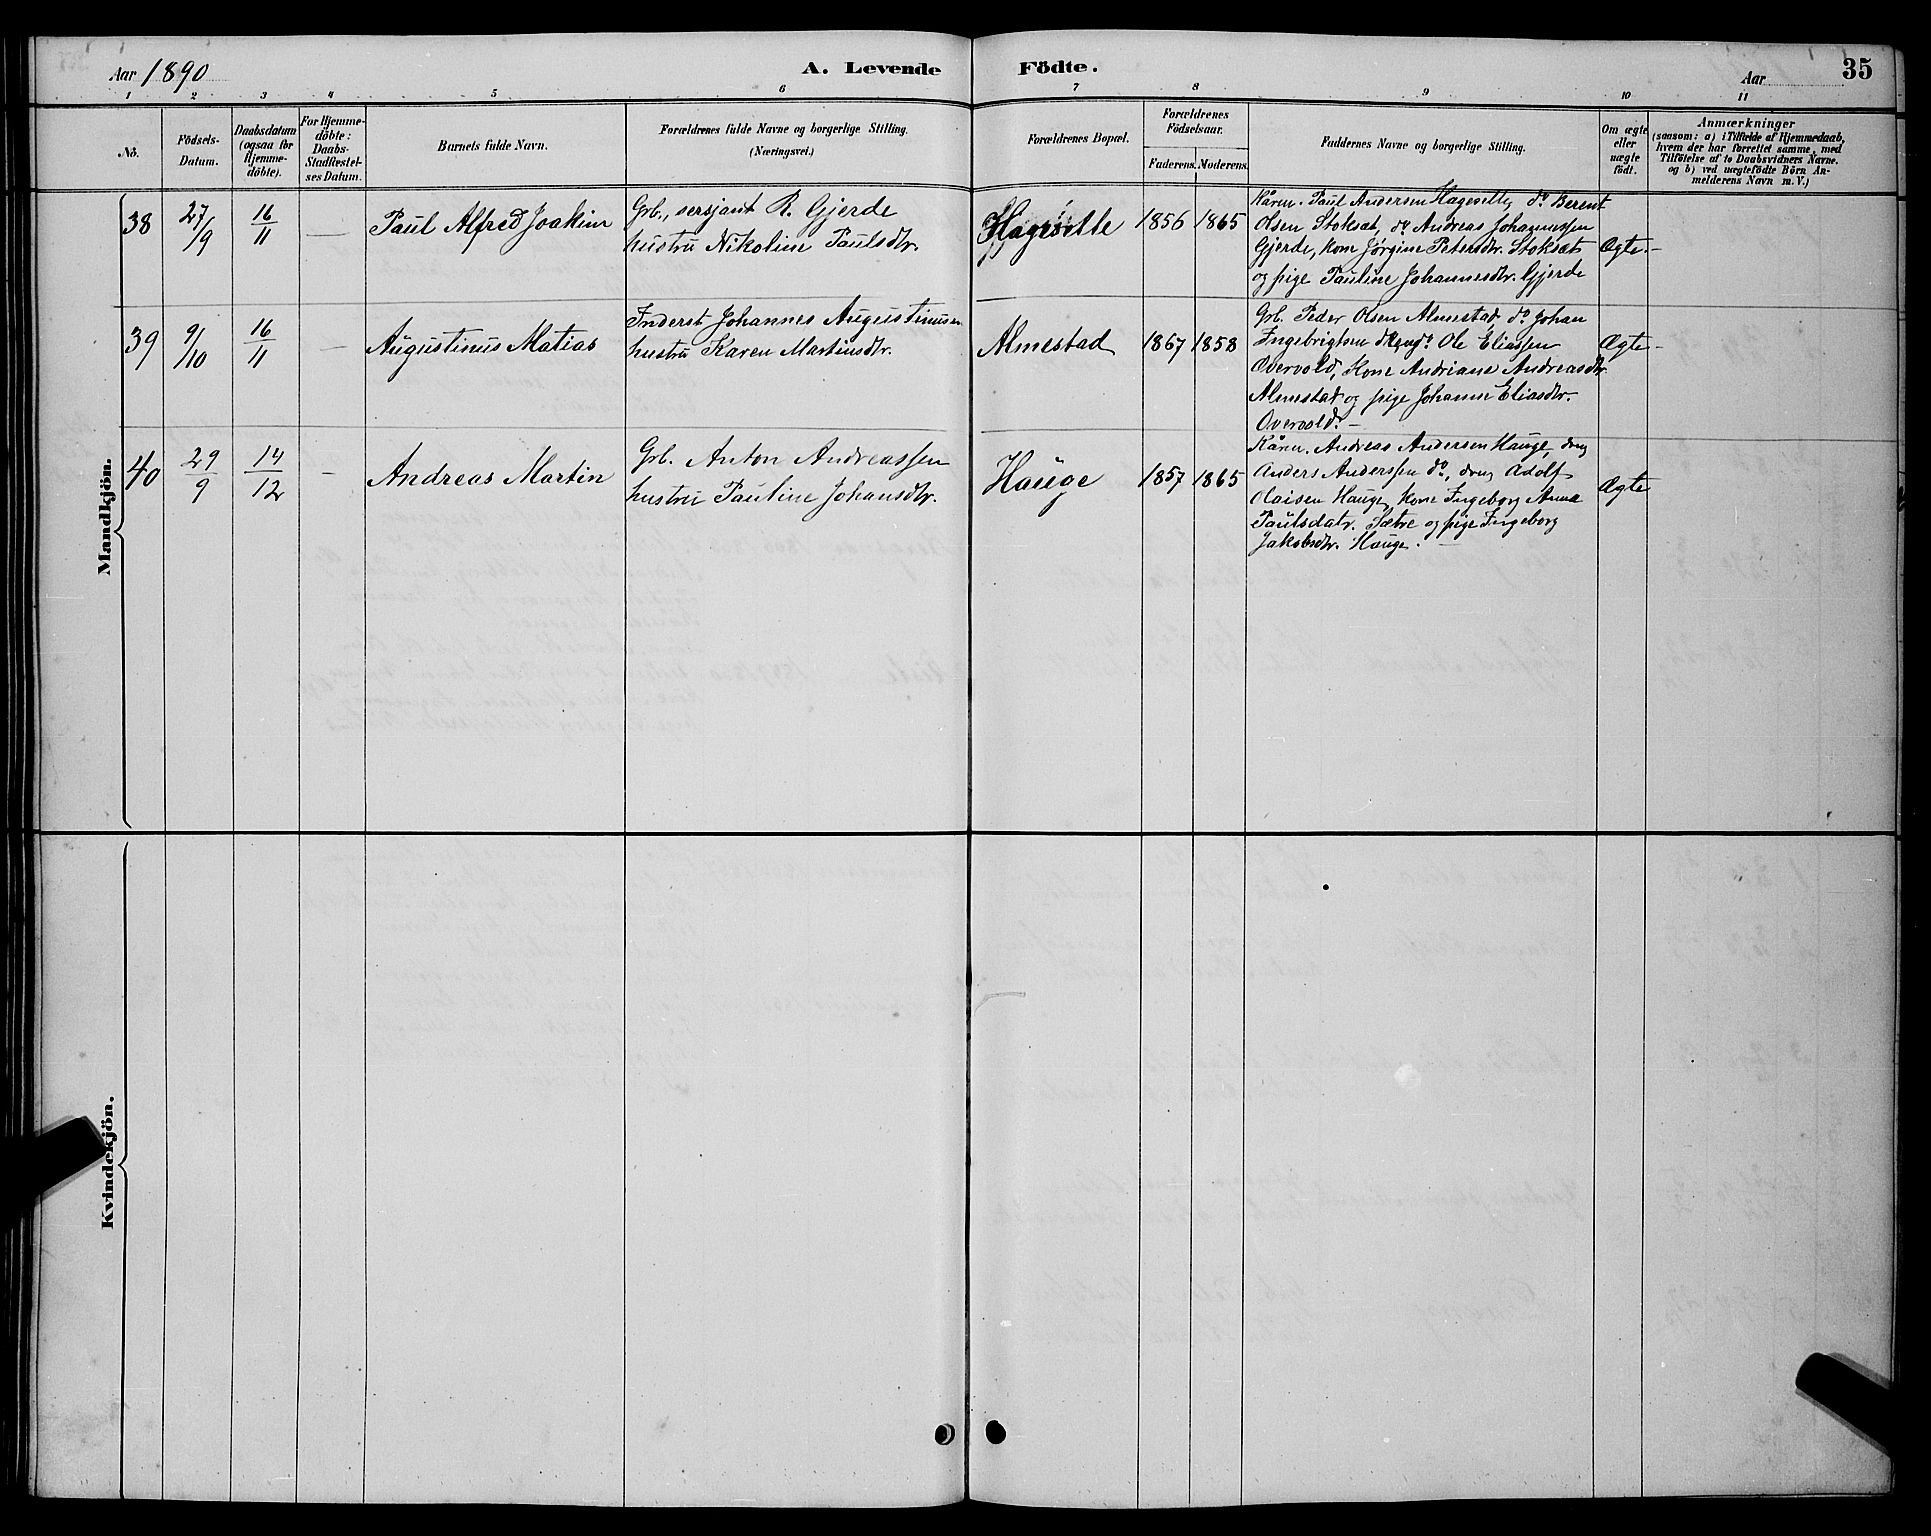 Aar 1890
A. Levende Födte.
Aar
35
1 2 3 4 5 6 7 8 9 10 11
No.
Födsels-
Datum.
Daabsdatum
(ogsaa for
Hjemme-
döbte).
For Hjemme-
döbte:
Daabs-
Stadfæstel-
ses Datum.
Barnets fulde Navn.
Forældrenes fulde Navne og borgerlige Stilling.
(Næringsvei.)
Forældrenes Bopæl.
Forældrenes
Födselsaar.
Faderens. Moderens.
Faddernes Navne og borgerlige Stilling.
Om ægte
eller
uægte
födt.
Anmærkninger
(saasom: a) i Tilfælde af Hjemmedaab,
hvem der har forrettet samme, med
Tilföielse af to Daabsvidners Navne.
og b) ved uægtefödte Börn An-
melderens Navn m. V.)
Mandkjön.
38
27/9
16/11
—
Paul Alfred Joakim
Grb., sersjant R. Gjerde
hustru Nikoline Paulsdtr.
Hagesætte
1856 1865
Kårm. Paul Andersen Hagesette, do Berent
Olsen Stoksæt, do Andreas Johannessen
Gjerde, kone Jørgine Petersdtr. Stoksæt
og pige Pauline Johannesdtr. Gjerde
Ægte.—
39
9/10
16/11
—
Augustinus Matias
Inderst Johannes Augustinusen
hustru Karen Martinsdtr.
Almestad
1867 1858
Grb. Peder Olsen Almestad, do Johan
Ingebrigtsen do, Ole Eliassen
Overvold, kone Andriane Andreasdtr.
Almestad og pige Johanne Eliasdtr.
Overvold.—
Ægte—
40
29/9
14/12
—
Andreas Martin
Grb. Anton Andreassen
hustru Pauline Johansdtr.
Hauge
1857 1865
Kårm. Andreas Andersen Hauge, dreng
Anders Anderssen do, dreng Adolf
Olaisen Hauge, kone Ingeborg Anna
Paulsdatr. Sætre og pige Ingeborg
Jakobsdtr. Hauge.—
Ægte
Kvindekjön.